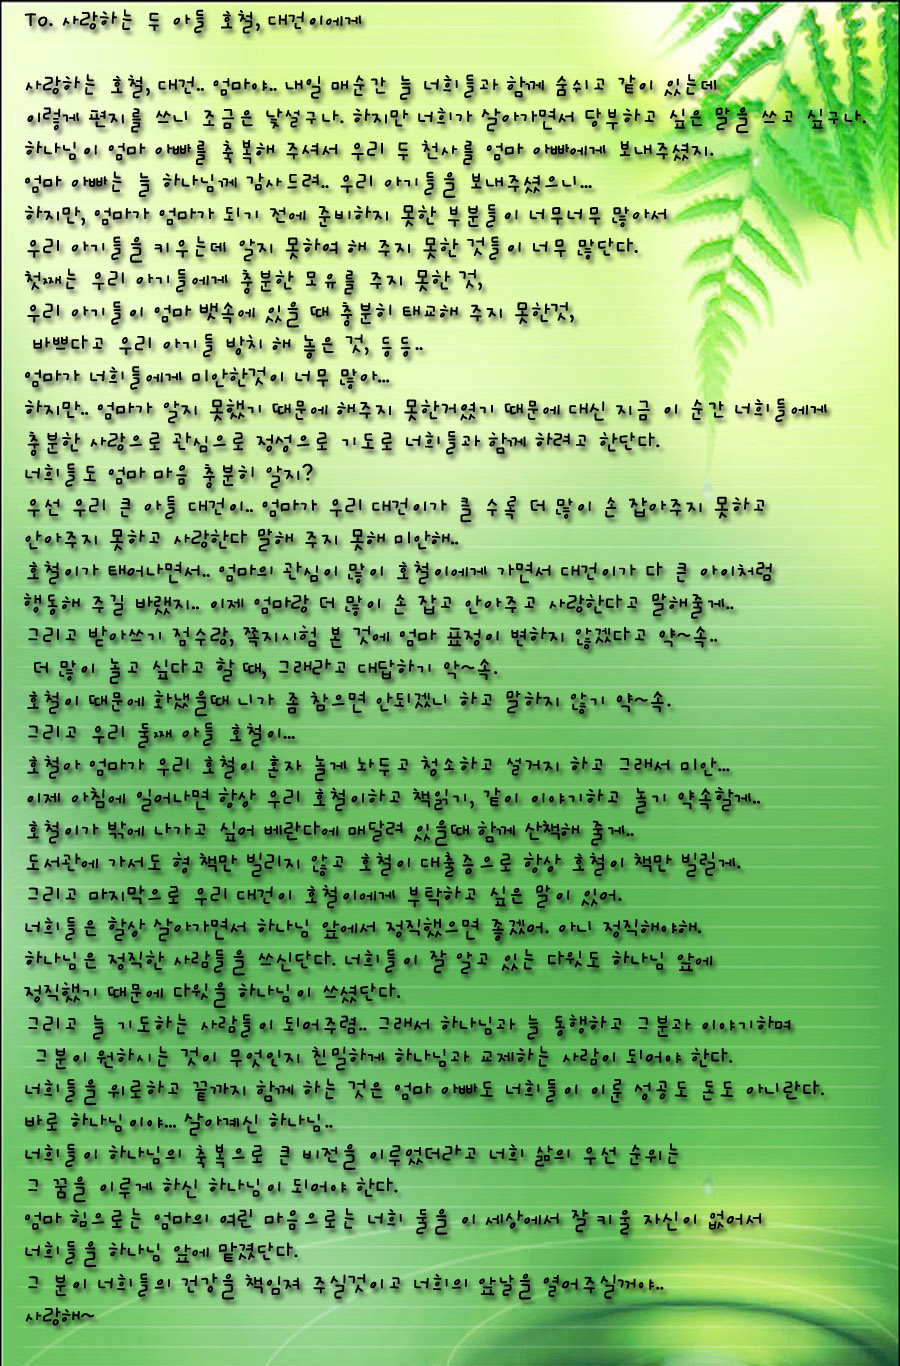 To. 사랑하는 두 아들 호철, 대건이에게
사랑하는 호철, 대건.. 엄마야.. 내일 매순간 늘 너희들과 함께 숨쉬고 같이 있는데
이렇게 편지를 쓰니 조금은 낯설구나. 하지만 너희가 살아가면서 당부하고 싶은 말을 쓰고 싶구나.
하나님이 엄마 아빠를 축복해 주셔서 우리 두 천사를 엄마 아빠에게 보내주셨지.
엄마 아빠는 늘 하나님께 감사드려.. 우리 아기들을 보내주셨으니...
하지만, 엄마가 엄마가 되기 전에 준비하지 못한 부분들이 너무너무 많아서
우리 아기들을 키우는데 알지 못하여 해 주지 못한 것들이 너무 많단다.
첫째는 우리 아기들에게 충분한 모유를 주지 못한 것,
우리 아기들이 엄마 뱃속에 있을 때 충분히 태교해 주지 못한것,
바쁘다고 우리 아기들 방치 해 놓은 것, 등등..
엄마가 너희들에게 미안한것이 너무 많아...
하지만.. 엄마가 알지 못했기 때문에 해주지 못한거였기 때문에 대신 지금 이 순간 너희들에게
충분한 사랑으로 관심으로 정성으로 기도로 너희들과 함께 하려고 한단다.
너희들도 엄마 마음 충분히 알지?
우선 우리 큰 아들 대건이.. 엄마가 우리 대건이가 클 수록 더 많이 손 잡아주지 못하고
안아주지 못하고 사랑한다 말해 주지 못해 미안해..
호철이가 태어나면서.. 엄마의 관심이 많이 호철이에게 가면서 대건이가 다 큰 아이처럼
행동해 주길 바랬지.. 이제 엄마랑 더 많이 손 잡고 안아주고 사랑한다고 말해줄게..
그리고 받아쓰기 점수랑, 쪽지시험 본 것에 엄마 표정이 변하지 않겠다고 약~속..
더 많이 놀고 싶다고 할 때, 그래라고 대답하기 약~속.
호철이 때문에 화냈을때 니가 좀 참으면 안되겠니 하고 말하지 않기 약~속.
그리고 우리 둘째 아들 호철이...
호철아 엄마가 우리 호철이 혼자 놀게 놔두고 청소하고 설거지 하고 그래서 미안...
이제 아침에 일어나면 항상 우리 호철이하고 책읽기, 같이 이야기하고 놀기 약속할게..
호철이가 밖에 나가고 싶어 베란다에 매달려 있을때 함께 산책해 줄게..
도서관에 가서도 형 책만 빌리지 않고 호철이 대출증으로 항상 호철이 책만 빌릴게.
그리고 마지막으로 우리 대건이 호철이에게 부탁하고 싶은 말이 있어.
너희들은 항상 살아가면서 하나님 앞에서 정직했으면 좋겠어. 아니 정직해야해.
하나님은 정직한 사람들을 쓰신단다. 너희들이 잘 알고 있는 다윗도 하나님 앞에
정직했기 때문에 다윗을 하나님이 쓰셨단다.
그리고 늘 기도하는 사람들이 되어주렴.. 그래서 하나님과 늘 동행하고 그분과 이야기하며
그분이 원하시는 것이 무엇인지 친밀하게 하나님과 교제하는 사람이 되어야 한다.
너희들을 위로하고 끝까지 함께 하는 것은 엄마 아빠도 너희들이 이룬 성공도 돈도 아니란다.
바로 하나님이야... 살아계신 하나님..
너희들이 하나님의 축복으로 큰 비전을 이루었더라고 너희 삶의 우선 순위는
그 꿈을 이루게 하신 하나님이 되어야 한다.
엄마 힘으로는 엄마의 여린 마음으로는 너희 둘을 이 세상에서 잘 키울 자신이 없어서
너희들을 하나님 앞에 맡겼단다.
그 분이 너희들의 건강을 책임져 주실것이고 너희의 앞날을 열어주실꺼야..
사랑해~